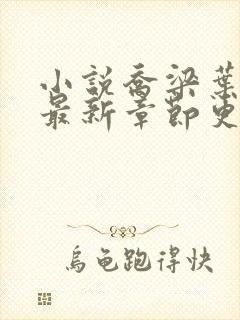 小說喬梁葉
最新章節更
烏龜跑得快